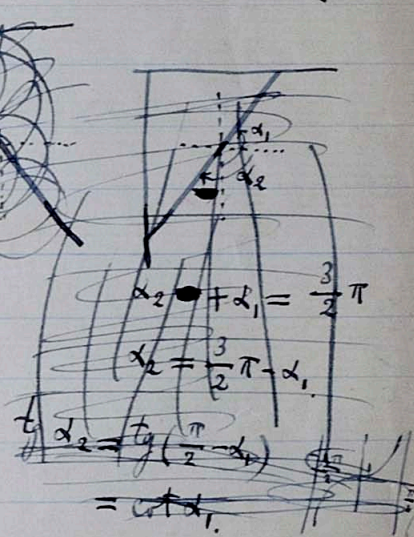 α₁
α₂
α₂ + α₁ = 3/2 π
α₂ = 3/2 π - α₁.
tg α₂ = tg(π/2 - α₁)
= cot α₁.